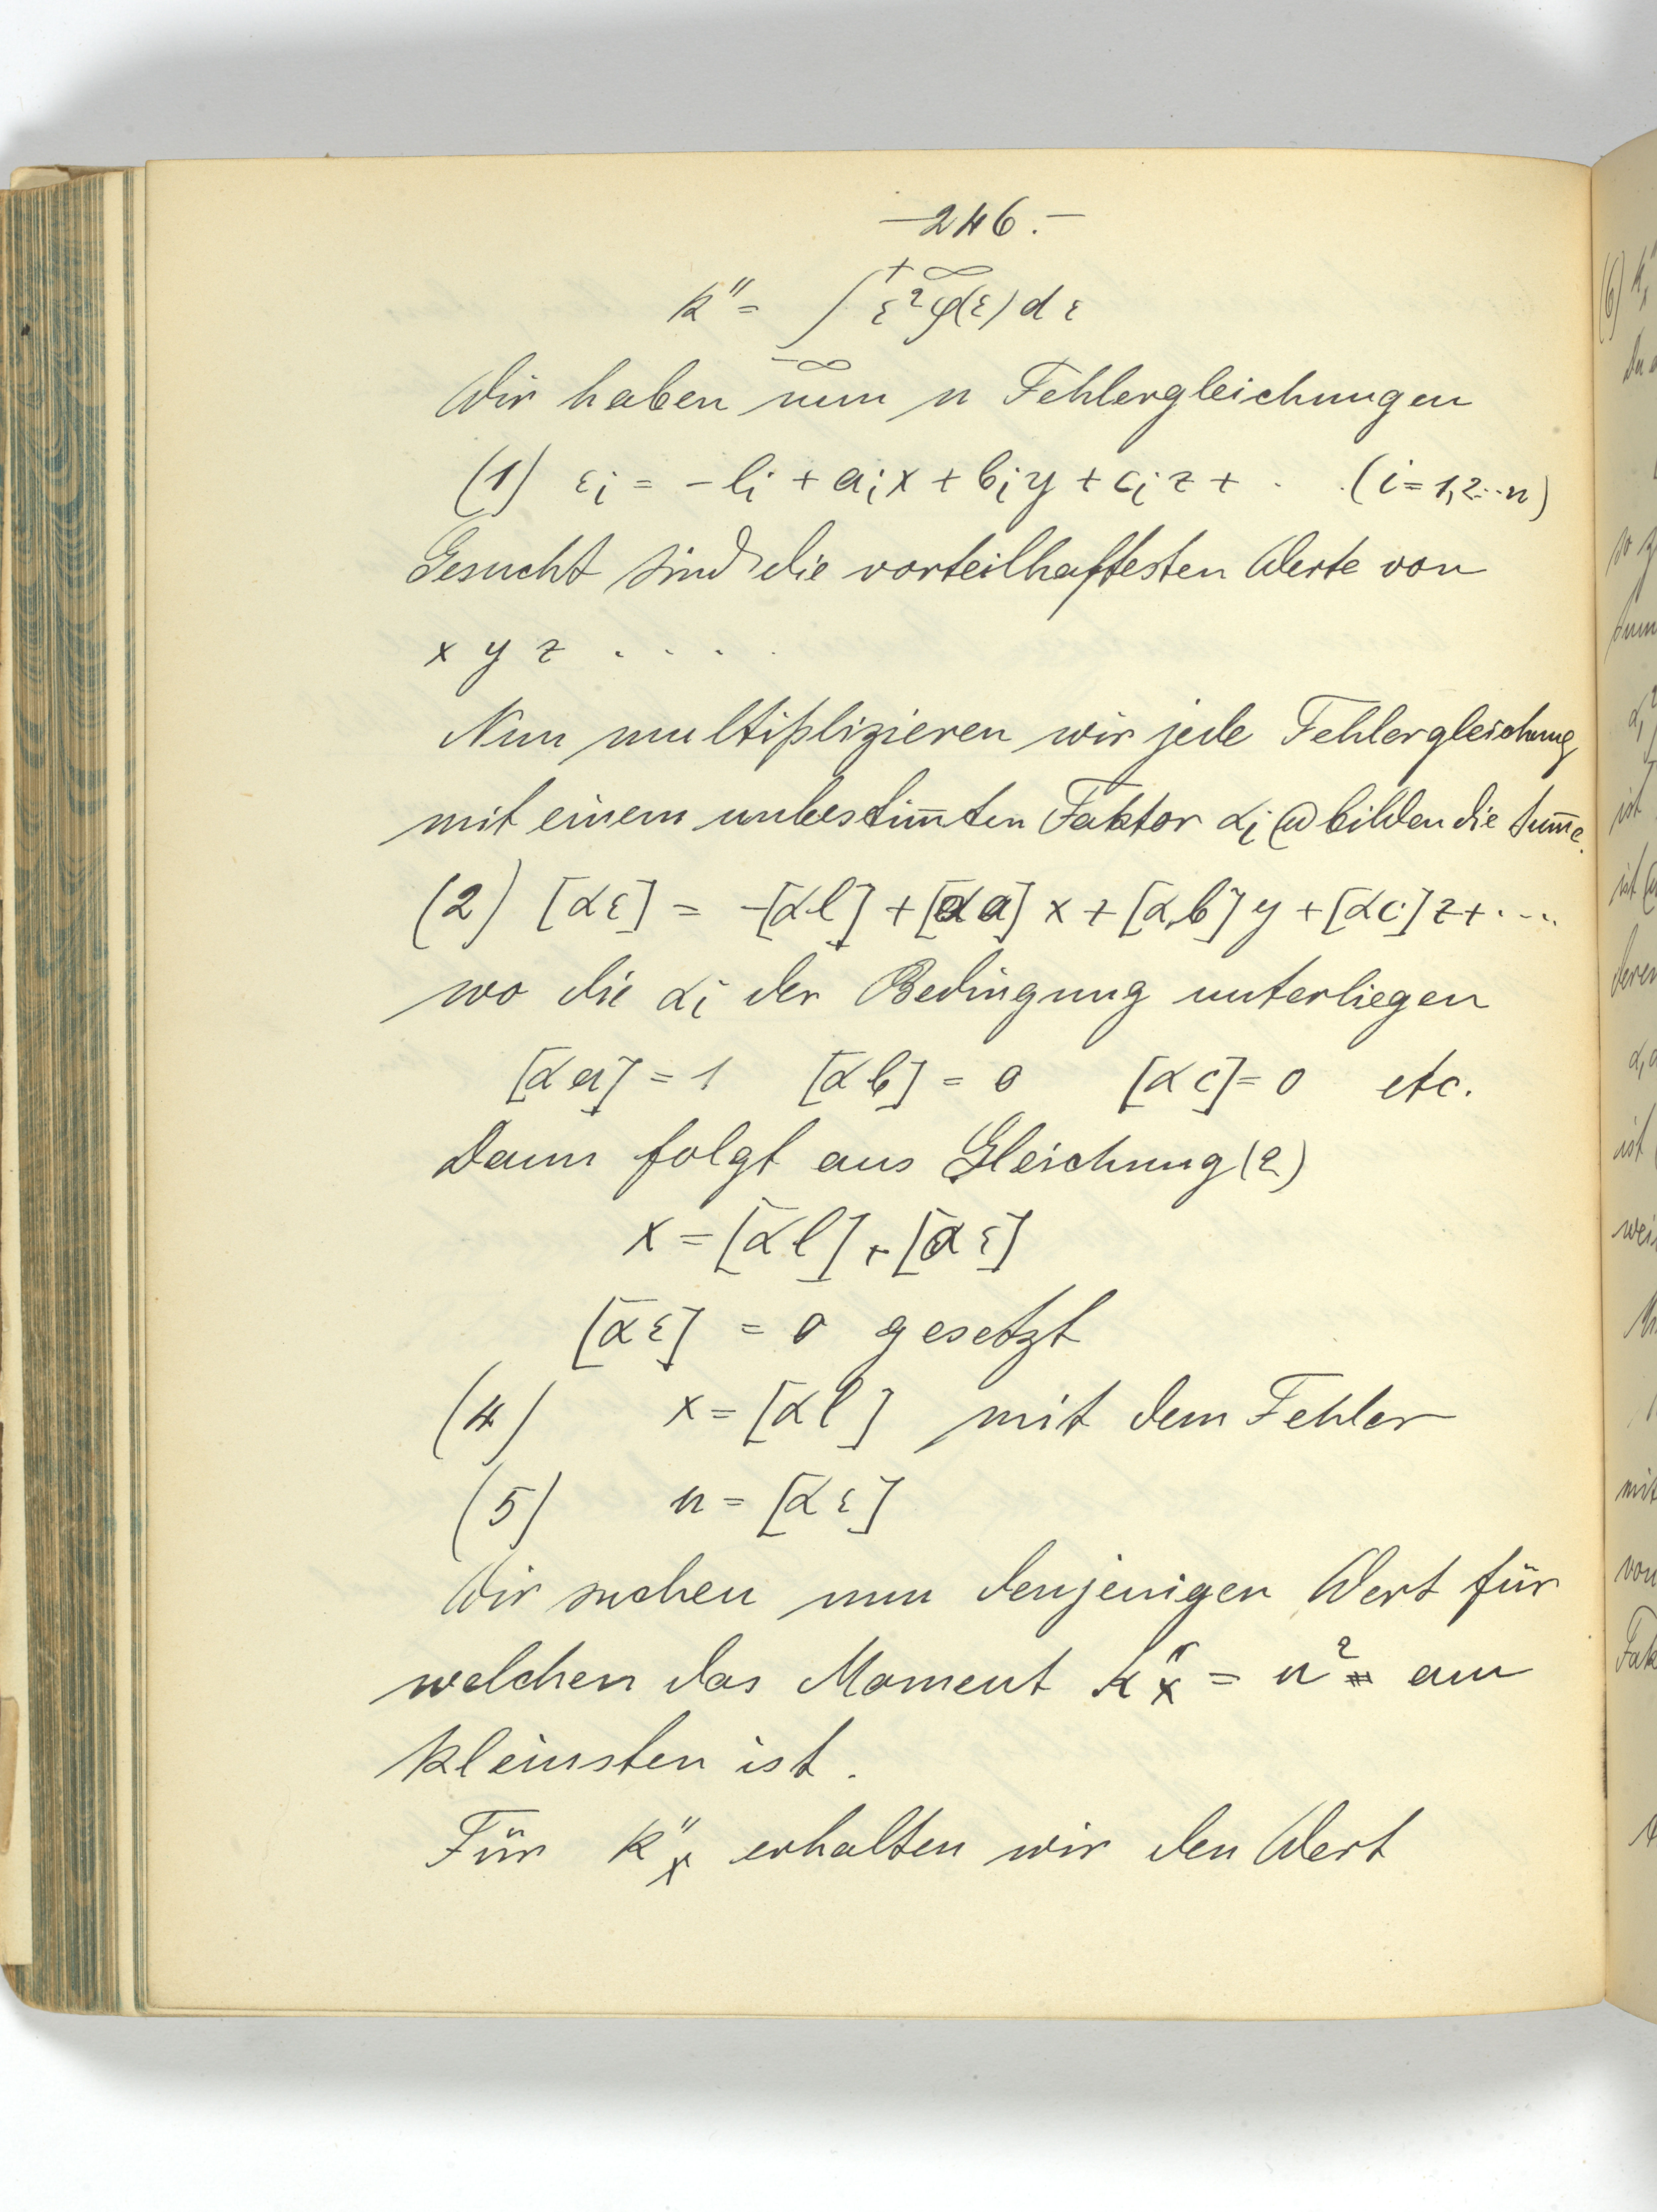 —246.—
k″ = ∫₋∞^+∞ ε² φ(ε) d ε
Wir haben nun n Fehlergleichungen
(1) εᵢ = -lᵢ + aᵢx + bᵢy + cᵢz + . . (i = 1,2...n)
Gesucht sind die vorteilhaftesten Werte von
x y z . . . . .
Nun multiplizieren wir jede Fehlergleichung
mit einem unbestim̅ten Faktor αᵢ & bilden die Sum̅e.
(2) [αε] = -[αl] + [αa] x + [αb] y + [αc] z + . . . .
wo die αᵢ der Bedingung unterliegen
[αa] = 1 [αb] = 0 [αc] = 0 etc.
Dann folgt aus Gleichung (2)
x = [αl] + [αε]
[αε] = 0 gesetzt
(4) x = [αl] mit dem Fehler
(5) u = [αε]
Wir suchen nun denjenigen Wert für
welchen das Moment k″ₓ = u² am
kleinsten ist.
Für k″ₓ erhalten wir den Wert